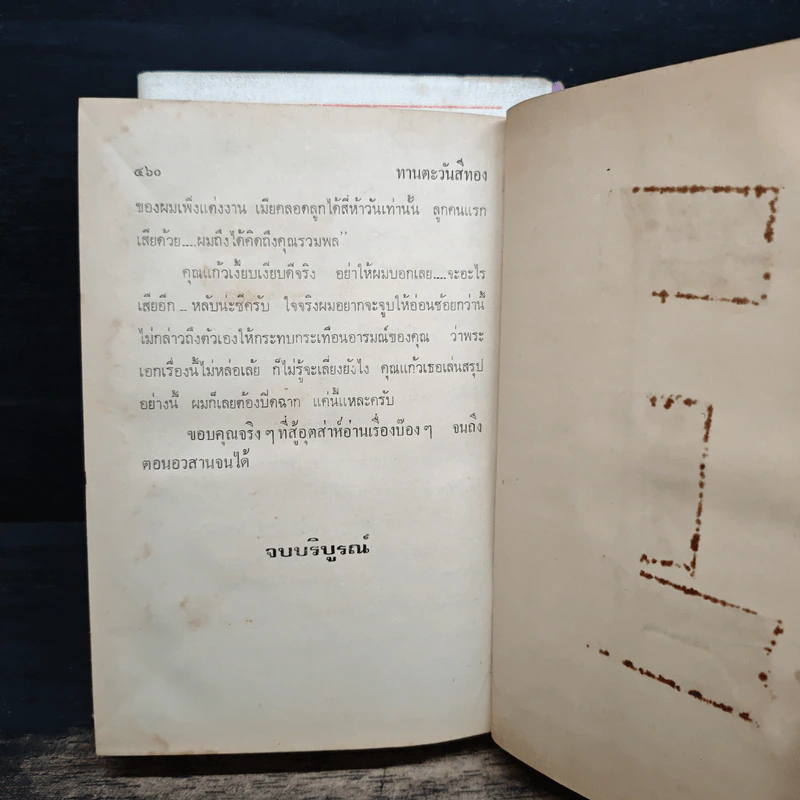 ๔๖๐ ทานตะวันสีทอง
ของผมเพิ่งแต่งงาน เมียคลอดลูกได้สี่ห้าวันเท่านั้น ลูกคนแรก
เสียด้วย....ผมถึงได้คิดถึงคุณรวมพล”
คุณแก้วเงี้ยบเงียบดีจริง อย่าให้ผมบอกเลย....จะอะไร
เสียอีก... หลับน่ะซีครับ ใจจริงผมอยากจะจูบให้อ่อนช้อยกว่านี้
ไม่กล่าวถึงตัวเองให้กระทบกระเทือนอารมณ์ของคุณ ว่าพระ
เอกเรื่องนี้ไม่หล่อเล้ย ก็ไม่รู้จะเลี่ยงยังไง คุณแก้วเธอเล่นสรุป
อย่างนี้ ผมก็เลยต้องปิดฉาก แค่นี้แหละครับ
ขอบคุณจริง ๆ ที่สู้อุตส่าห์อ่านเรื่องบ๊อง ๆ จนถึง
ตอนอวสานจนได้
จบบริบูรณ์